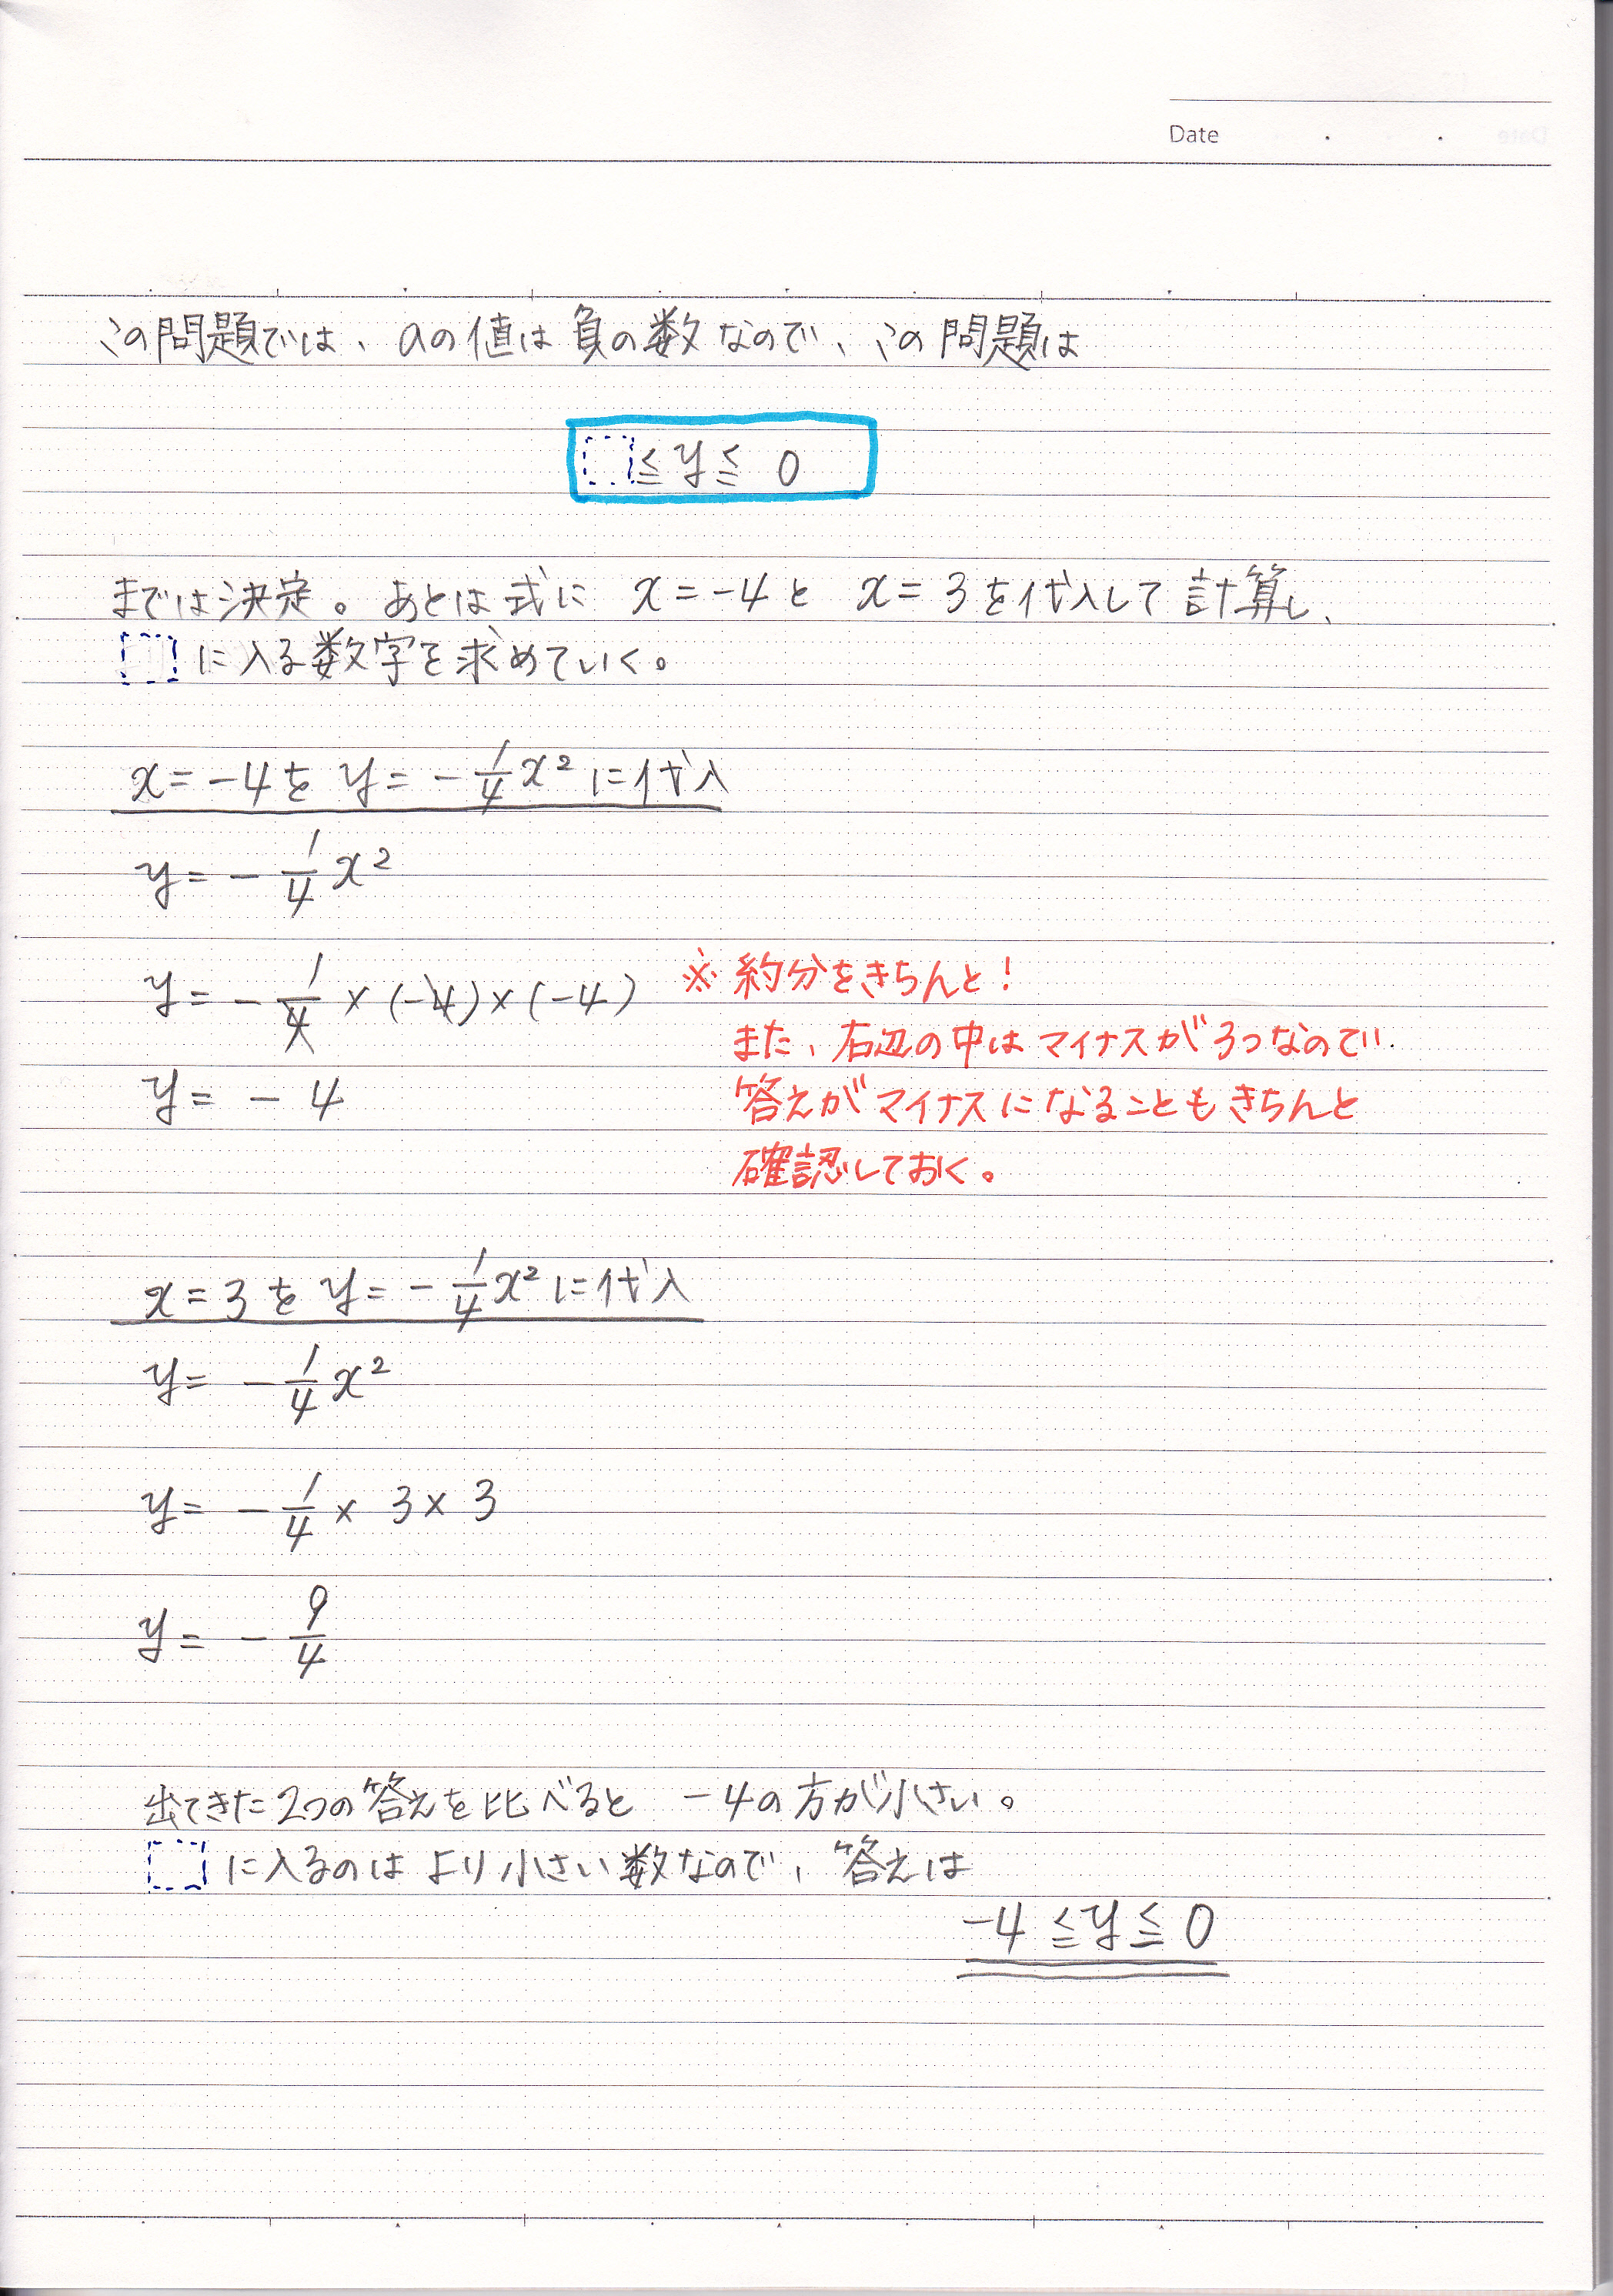 Date . .
この問題では、aの値は負の数なので、この問題は
□≦y≦ 0
までは決定。あとは式に x=-4と x=3を代入して計算し、
□に入る数字を求めていく。
x=-4を y=-1/4x²に代入
y=-1/4x²
y=-1/4×(-4)×(-4)
※約分をきちんと!
また、右辺の中はマイナスが3つなので
y=-4
答えがマイナスになることもきちんと
確認しておく。
x=3を y=-1/4x²に代入
y=-1/4x²
y=-1/4×3×3
y=-9/4
出てきた2つの答えを比べると -4の方が小さい。
□に入るのはより小さい数なので、答えは
-4≦y≦0